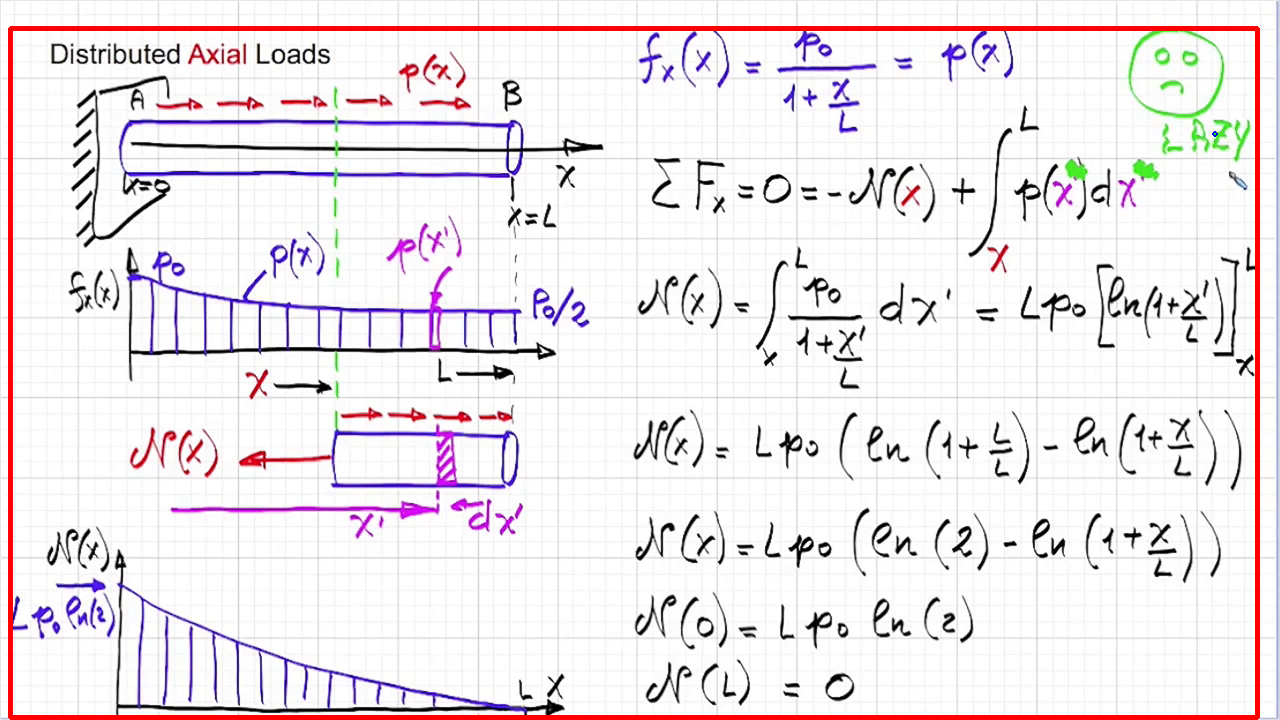 Distributed Axial Loads
p(x)
A
B
x=0
x
x=L
f_x(x)
p₀
p(x)
p(x')
p₀/2
x
L
N(x)
x'
dx'
N(x)
L p₀ ln(2)
L
X
f_x(x) = p₀ / (1+x/L) = p(x)
LAZY
ΣF_x = 0 = -N(x) + ∫_x^L p(x )dx
N(x) = ∫_x^L p₀ / (1+x'/L) dx' = Lp₀ [ln(1+x'/L)]_x^L
N(x) = Lp₀ (ln(1+L/L) - ln(1+x/L))
N(x) = Lp₀ (ln(2) - ln(1+x/L))
N(0) = Lp₀ ln(2)
N(L) = 0